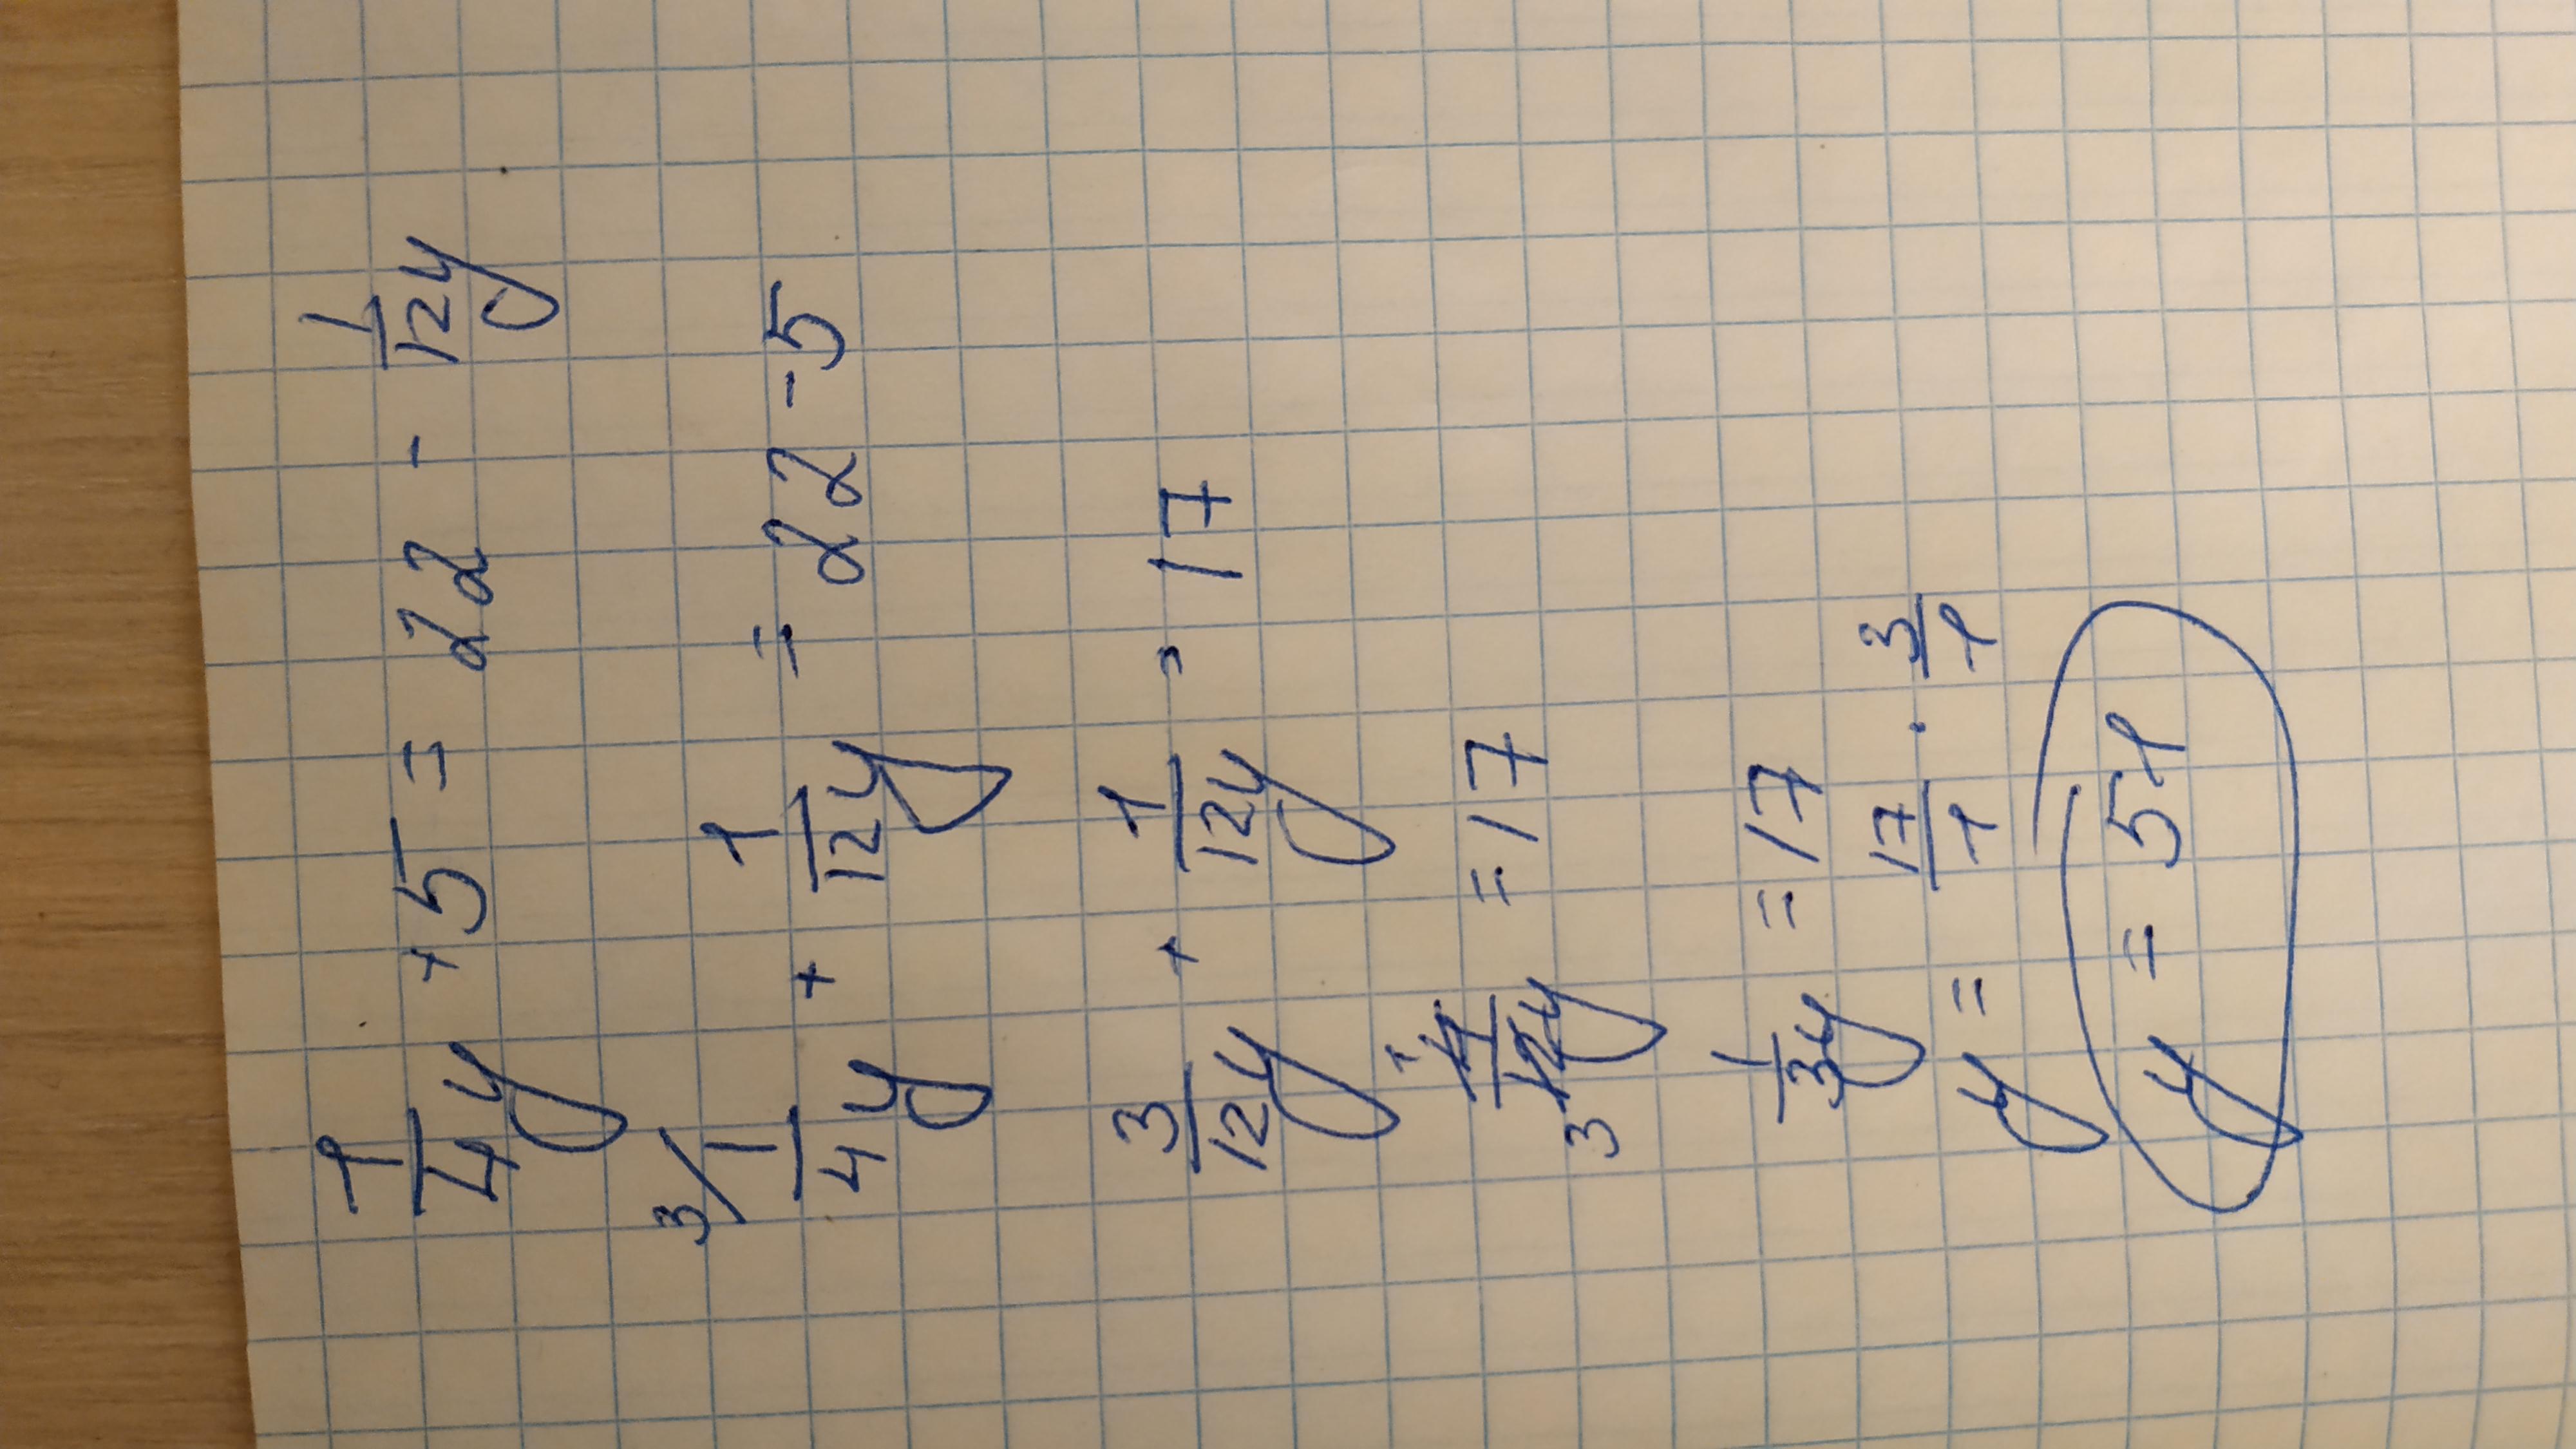 1/4 y + 5 = 22 - 1/12 y
3/ 1/4 y + 1/12 y = 22 - 5
3/12 y + 1/12 y = 17
1 4/12 3 y = 17
1/3 y = 17
y = 17/1 · 3/1
y = 51